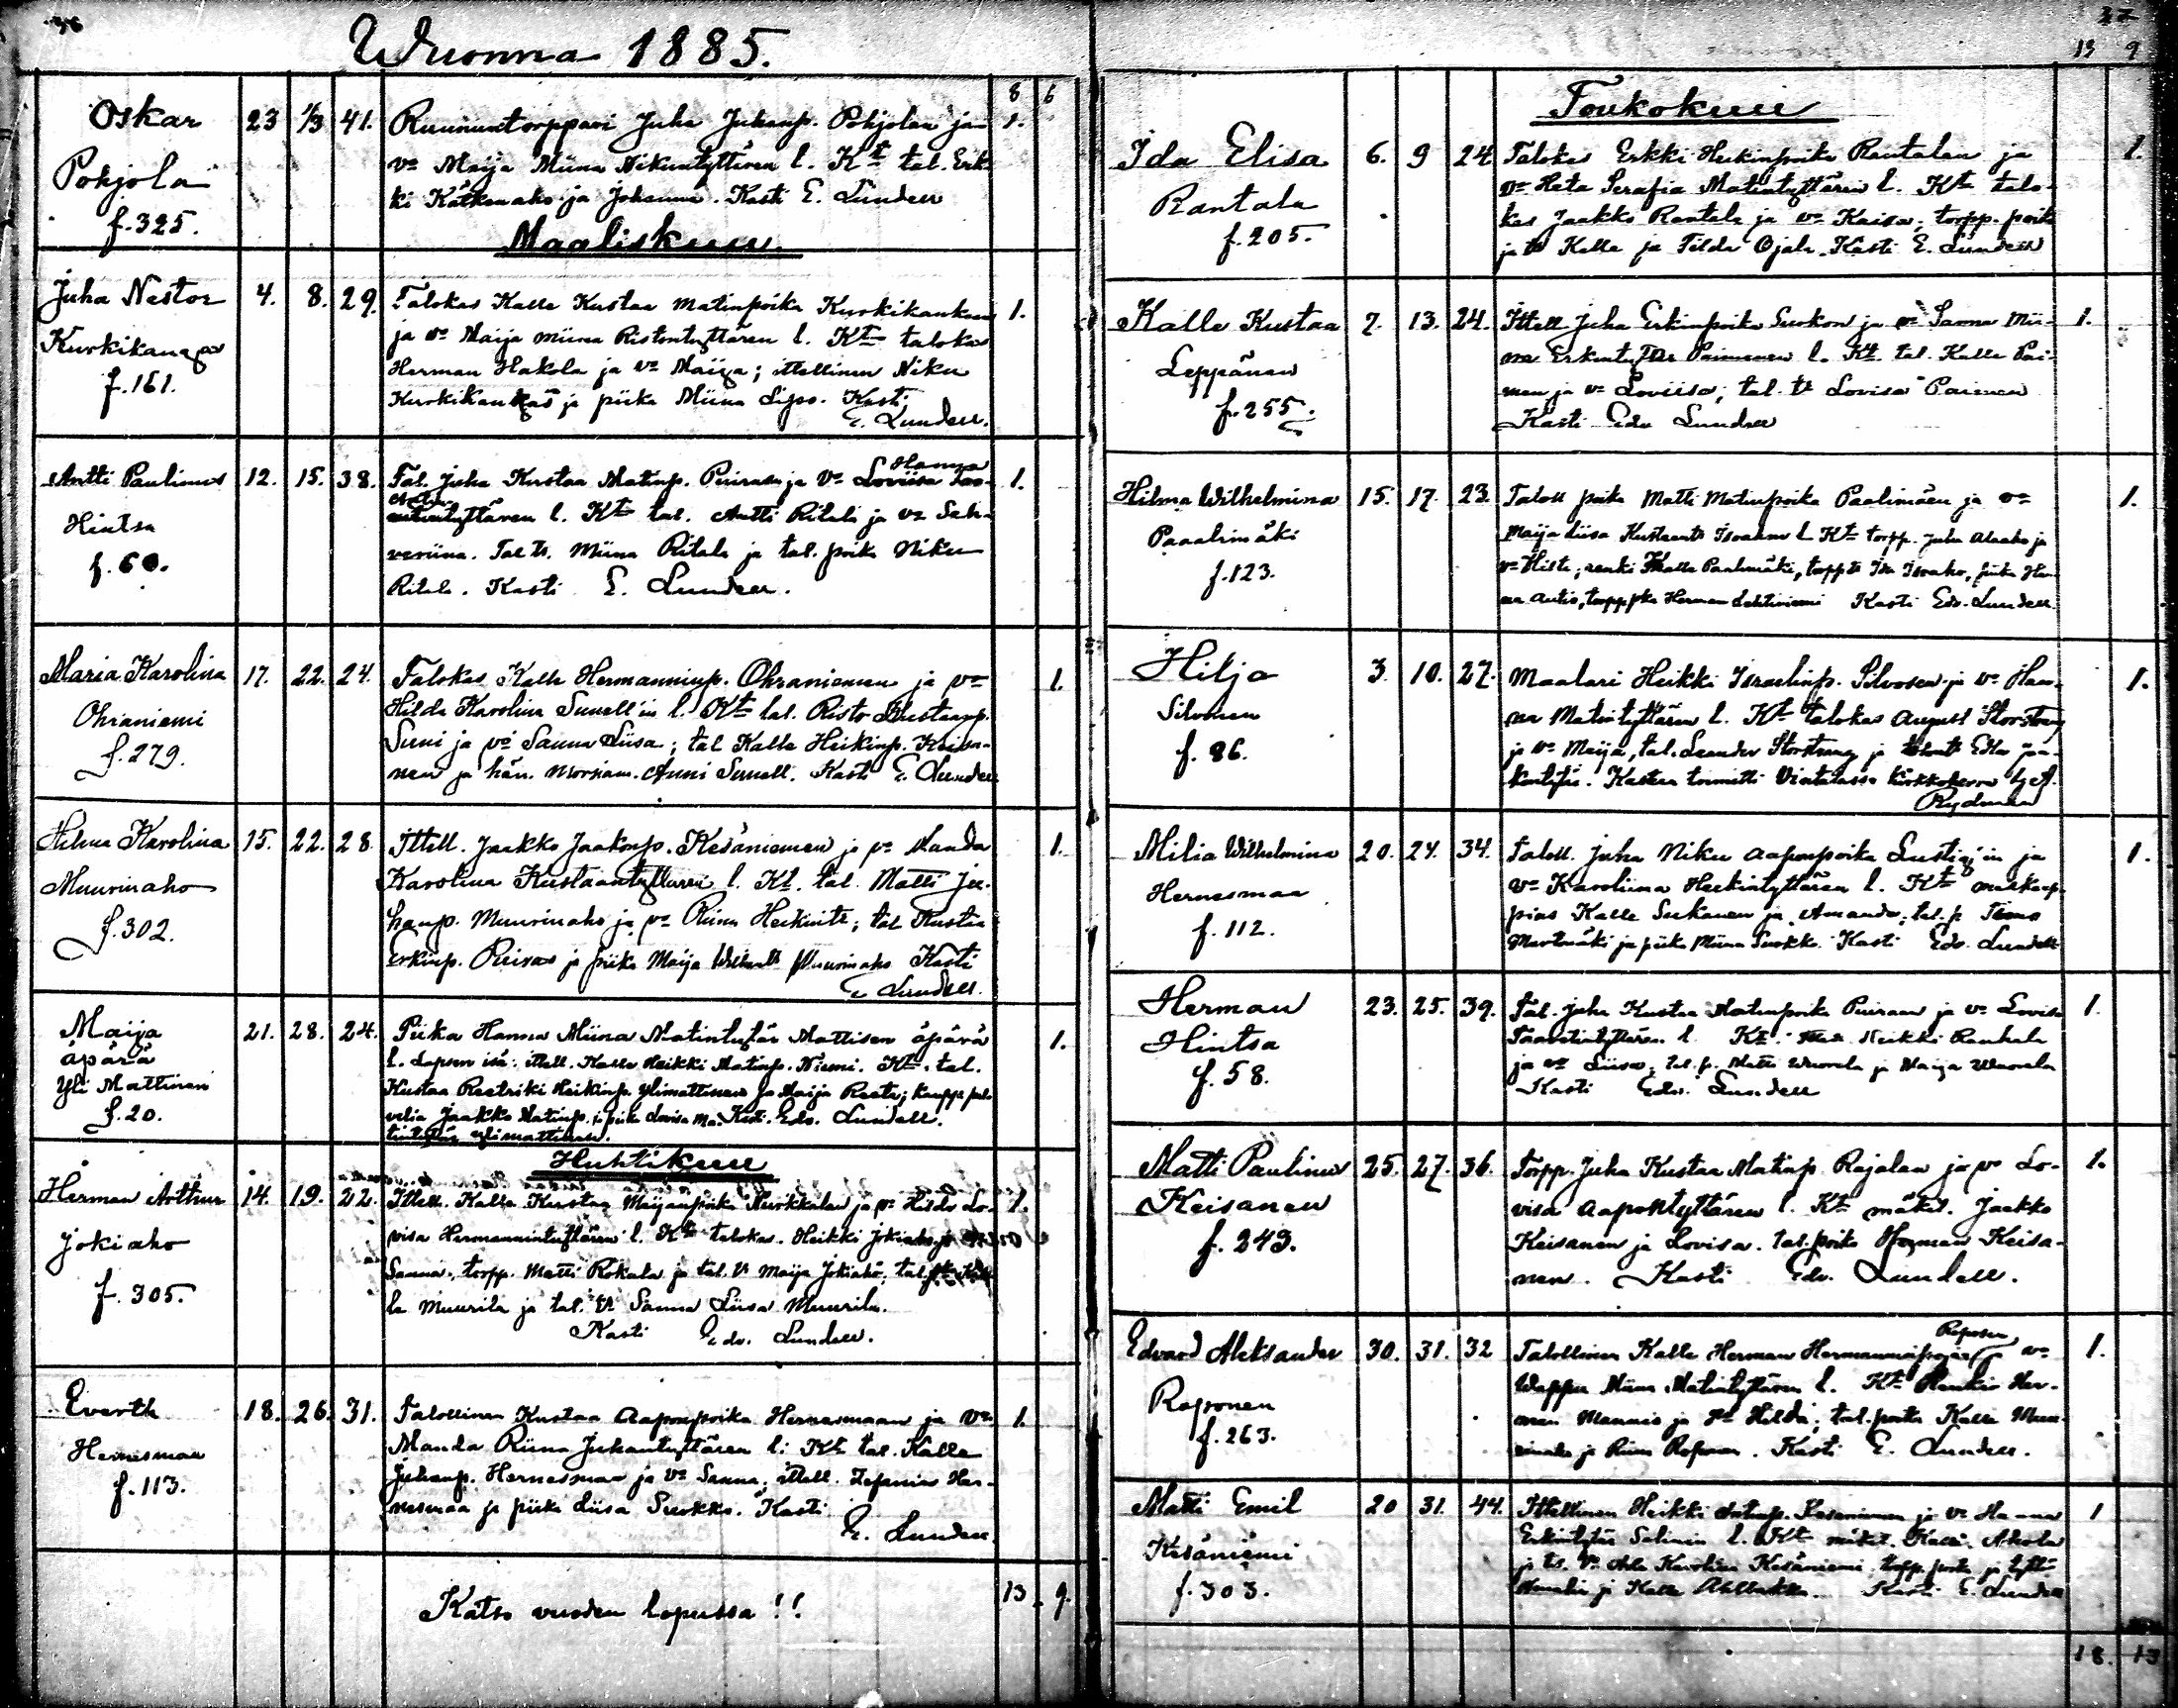 36
Wuonna 1885.
8 6
Oskar
Pohjola
f. 325.
23 1/3 41.
Ruununtorppari Juha Juhanp. Pohjolan ja 1.
vo Maija Miina Nikuntyttären l. Kt tal. Erk-
ki Kätkenaho ja Johanna. Kasti E. Lundell
Maaliskuu
Juha Nestor
Kurkikangas
f. 161.
4. 8. 29.
Talokas Kalle Kustaa Matinpoika Kurkikankaan 1.
ja vo Maija Miina Ristontyttären l. Kt talokas
Herman Hakola ja vo Maija; ittellinen Niku
Kurkikangas ja piika Miina Lipo. Kasti
E. Lundell.
Antti Paulinus
Hintsa
f. 60.
12. 15. 38.
Hanna
Tal. Juha Kustaa Matinp. Puiraan ja vo Loviisa 1.
tyttären l. Kt tal. Antti Ritala ja vo Sah-
veriina. Tal. tr. Miina Ritala ja tal. poika Niku
Ritala. Kasti E. Lundell.
Maria Karolina
Ohraniemi
f. 279.
17. 22. 24.
Talokas Kalle Hermanninp. Ohraniemen ja vo 1.
Hilda Karolina Sunell'in l. Kt tal. Risto Kustaanp.
Suni ja vo Sanna Liisa; tal Kalle Heikinp. Keisa-
nen ja hän. morsiam. Anni Sunell. Kasti E. Lundell
Hilma Karolina
Muurinaho
f. 302.
15. 22. 28.
Ittell. Jaakko Jaakonp. Kesäniemen ja vo Wanda 1.
Karolina Kustaantyttären l. Kt. tal. Matti Ju-
hanp. Muurinaho ja vo Riina Heikintr; tal Kustaa
Erkinp. Puiras ja piika Maija Muurinaho Kasti
E Lundell.
Maija
äpärä
Yli Mattinen
f. 20.
21. 28. 24.
Piika Hanna Miina Matintytär Mattisen äpärä 1.
l. Lapsen isä: ittell. Kalle Heikki Matinp. Niemi. Kt. tal.
Kustaa Reetriki Heikinp. Ylimattinen ja Maija Reeta; kaupp. pal-
velia Jaakko Matinp. ja piika Lovisa Ma- Kasti. Edv. Lundell.
tintytär ylimattinen.
Huhtikuu
Herman Arthur
Jokiaho
f. 305.
14. 19. 22.
Ittell. Kalle Kustaa Maijanpoika Hurkkalan ja vo Hilda Lo- 1.
visa Hermannintyttären l. Kt talokas. Heikki Jokiaho ja
Sanna, torpp. Matti Rokala ja tal. tr Maija Jokiaho; tal.
la Muurila ja tal. tr Sanna Liisa Muurila.
Kasti Edv. Lundell.
Everth
Hernesmaa
f. 113.
18. 26. 31.
Talollinen Kustaa Aaponpoika Hernesmaan ja vo 1.
Manda Riina Juhantyttären l. Kt tal. Kalle
Juhanp. Hernesmaa ja vo Sanna; ittell. Zefanias Her-
nesmaa ja piika Liisa Suokko. Kasti
E. Lundell
Katso vuoden lopussa!! 13 9.
37
13 9
Toukokuu
Ida Elisa
Rantala
f. 205.
6. 9 24
Talokas Erkki Heikinpoika Rantalan ja 1.
vo Heta Serafia Matintyttären l. Kt talo-
kas Jaakko Rantala ja vo Kaisa; torpp. poika
ja tr Kalle ja Tilda Ojala. Kasti E. Lundell
Kalle Kustaa
Leppänen
f. 255.
7. 13. 24.
Ittell Juha Erkinpoika Suokon ja vo Sanna Mii- 1.
na Erkintyttär Paimenen l. Kt. tal. Kalle Pai-
men ja vo Loviisa; tal. tr Lovisa Paimen
Kasti Edv Lundell
Hilma Wilhelmina
Paaalimäki
f. 123.
15. 17. 23.
Taloll poika Matti Matinpoika Paalimäen ja vo 1.
Maija Liisa Kustaantr Isoahon l. Kt torpp. Juha Alaaho ja
vo Kista; renki Kalle Paalimäki, torpp tr Ida Isoaho, piika Han-
na Autio, torpp pka Herman Lehtiniemi Kasti Edv. Lundell
Hilja
Silvonen
f. 86.
3. 10. 27.
Maalari Heikki Israelinp. Silvosen ja vo Han- 1.
na Matintyttären l. Kt talokas August Storstrang
ja vo Maija, tal. Leander Storstrang ja Edla Jaa-
kontytär. Kasteen toimitti Viatalassa kirkkoherra
Rydman
Milia Wilhelmina
Hernesmaa
f. 112.
20. 24. 34.
Taloll. Juha Niku Aaponpoika Lustig'in ja 1.
vo Karoliina Heikintyttären l. Kt
pias Kalle Sukanen ja Amanda; tal. p.
ja piika Miina Suokko. Kasti Edv. Lundell
Herman
Hintsa
f. 58.
23. 25. 39.
Tal. Juha Kustaa Matinpoika Puiraan ja vo Lovisa 1.
Taavetintyttären l. Kt. Heikki Rankala
ja vo Liisa; tal. p. Matti Wuorela ja Maija Wuorela
Kasti Edv. Lundell
Matti Paulinus
Keisanen
f. 249.
25. 27. 36.
Torpp. Juha Kustaa Matinp Rajalan ja vo Lo- 1.
visa Aapontyttären l. Kt mäkit. Jaakko
Keisanen ja Lovisa. tal. poika Herman Keisa-
nen. Kasti Edv. Lundell.
Edvard Aleksander
Raponen
f. 263.
30. 31. 32
Raposen
Talollinen Kalle Herman Hermanninpojan ja vo 1.
Wappu Miina Matintyttären l. Kt Her-
man Mannis ja vo Hilda; tal. poika Kalle Muu-
rinaho ja Riina Raponen. Kasti E. Lundell.
Matti Emil
Kesäniemi
f. 303.
20 31. 44.
Ittellinen Heikki Kesäniemen ja vo Hanna 1
Erkintytär Salinin l. Kt mäkit. Kalle Ahola
Karolina Kesäniemi torpp. poika ja tytt-
ja Kalle Kasti E. Lundell
18. 13